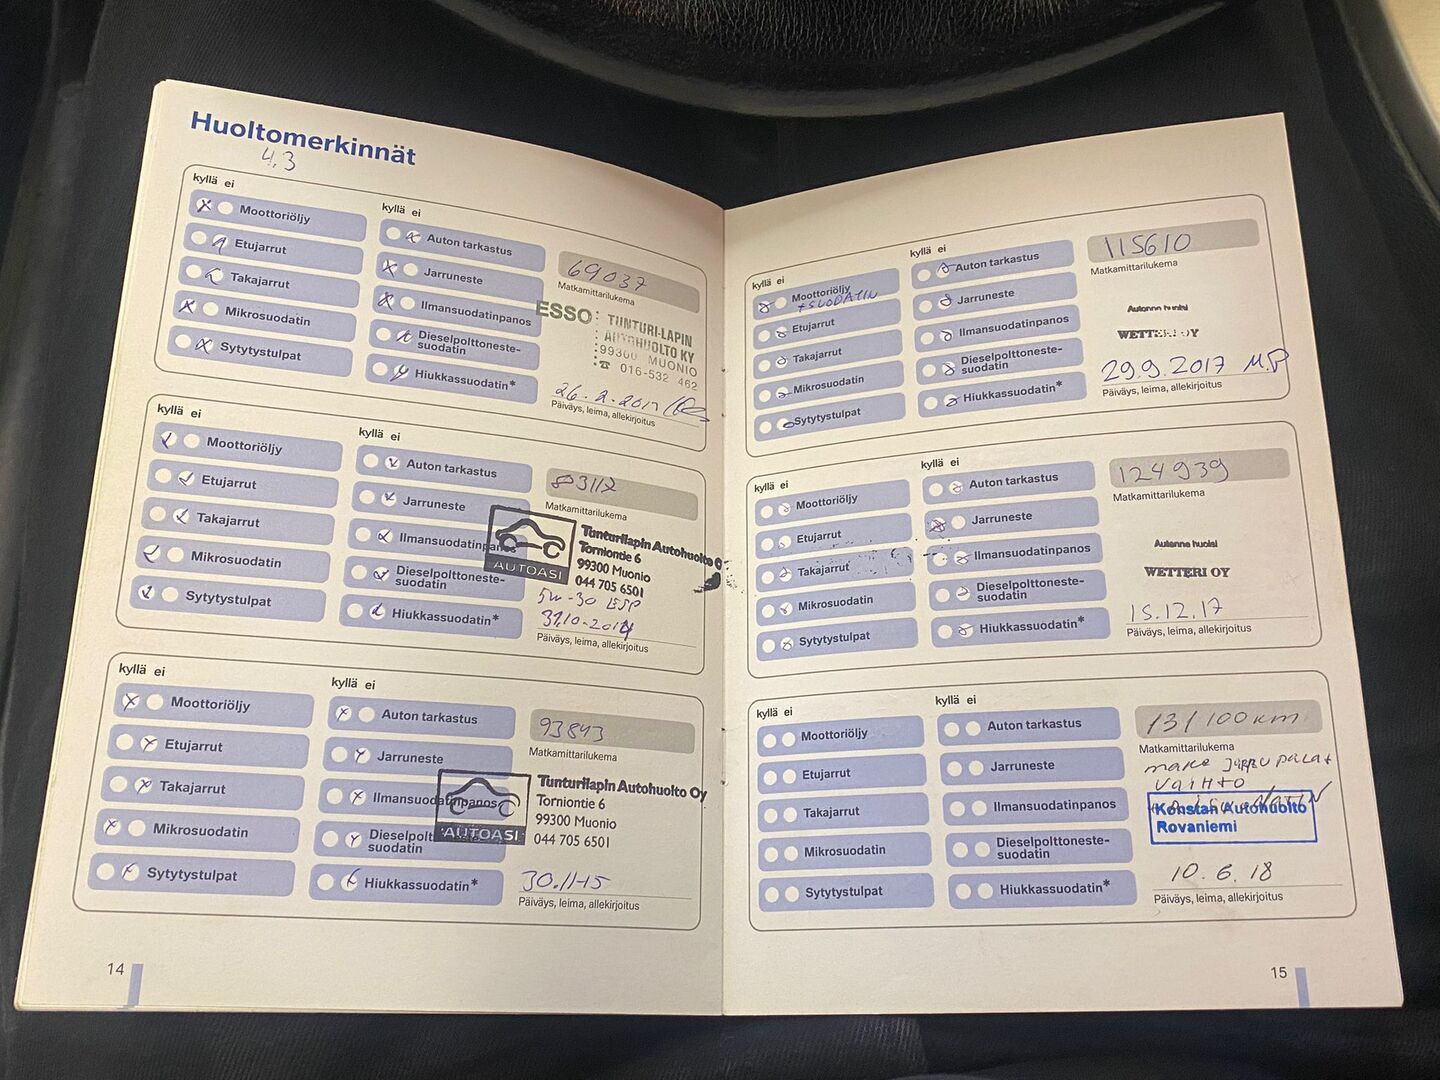 Huoltomerkinnät
4.3
kyllä ei
Moottoriöljy
Etujarrut
Takajarrut
Mikrosuodatin
Sytytystulpat
kyllä ei
Auton tarkastus
Jarruneste
Ilmansuodatinpanos
Dieselpolttoneste-
suodatin
Hiukkassuodatin*
69037
Matkamittarilukema
ESSO: TUNTURI-LAPIN
AUTOHUOLTO KY
99300 MUONIO
☎ 016-532 462
26.2.2013
Päiväys, leima, allekirjoitus
kyllä ei
Moottoriöljy
Etujarrut
Takajarrut
Mikrosuodatin
Sytytystulpat
kyllä ei
Auton tarkastus
Jarruneste
Ilmansuodatinpanos
Dieselpolttoneste-
suodatin
Hiukkassuodatin*
83112
Matkamittarilukema
AUTOASI
Tunturilapin Autohuolto
Torniontie 6
99300 Muonio
044 705 6501
5W-30 ESP
31.10-2014
Päiväys, leima, allekirjoitus
kyllä ei
Moottoriöljy
Etujarrut
Takajarrut
Mikrosuodatin
Sytytystulpat
kyllä ei
Auton tarkastus
Jarruneste
Ilmansuodatinpanos
Dieselpolttoneste-
suodatin
Hiukkassuodatin*
93843
Matkamittarilukema
AUTOASI
Tunturilapin Autohuolto Oy
Torniontie 6
99300 Muonio
044 705 6501
30.11-15
Päiväys, leima, allekirjoitus
14
kyllä ei
Moottoriöljy
+SUODATIN
Etujarrut
Takajarrut
Mikrosuodatin
Sytytystulpat
kyllä ei
Auton tarkastus
Jarruneste
Ilmansuodatinpanos
Dieselpolttoneste-
suodatin
Hiukkassuodatin*
115610
Matkamittarilukema
Autonne huolsi
WETTERI OY
29.9.2017 M.P
Päiväys, leima, allekirjoitus
kyllä ei
Moottoriöljy
Etujarrut
Takajarrut
Mikrosuodatin
Sytytystulpat
kyllä ei
Auton tarkastus
Jarruneste
Ilmansuodatinpanos
Dieselpolttoneste-
suodatin
Hiukkassuodatin*
124939
Matkamittarilukema
Autonne huolsi
WETTERI OY
15.12.17
Päiväys, leima, allekirjoitus
kyllä ei
Moottoriöljy
Etujarrut
Takajarrut
Mikrosuodatin
Sytytystulpat
kyllä ei
Auton tarkastus
Jarruneste
Ilmansuodatinpanos
Dieselpolttoneste-
suodatin
Hiukkassuodatin*
131100km
Matkamittarilukema
VAIHTO
Konstan Autohuolto
Rovaniemi
10.6.18
Päiväys, leima, allekirjoitus
15